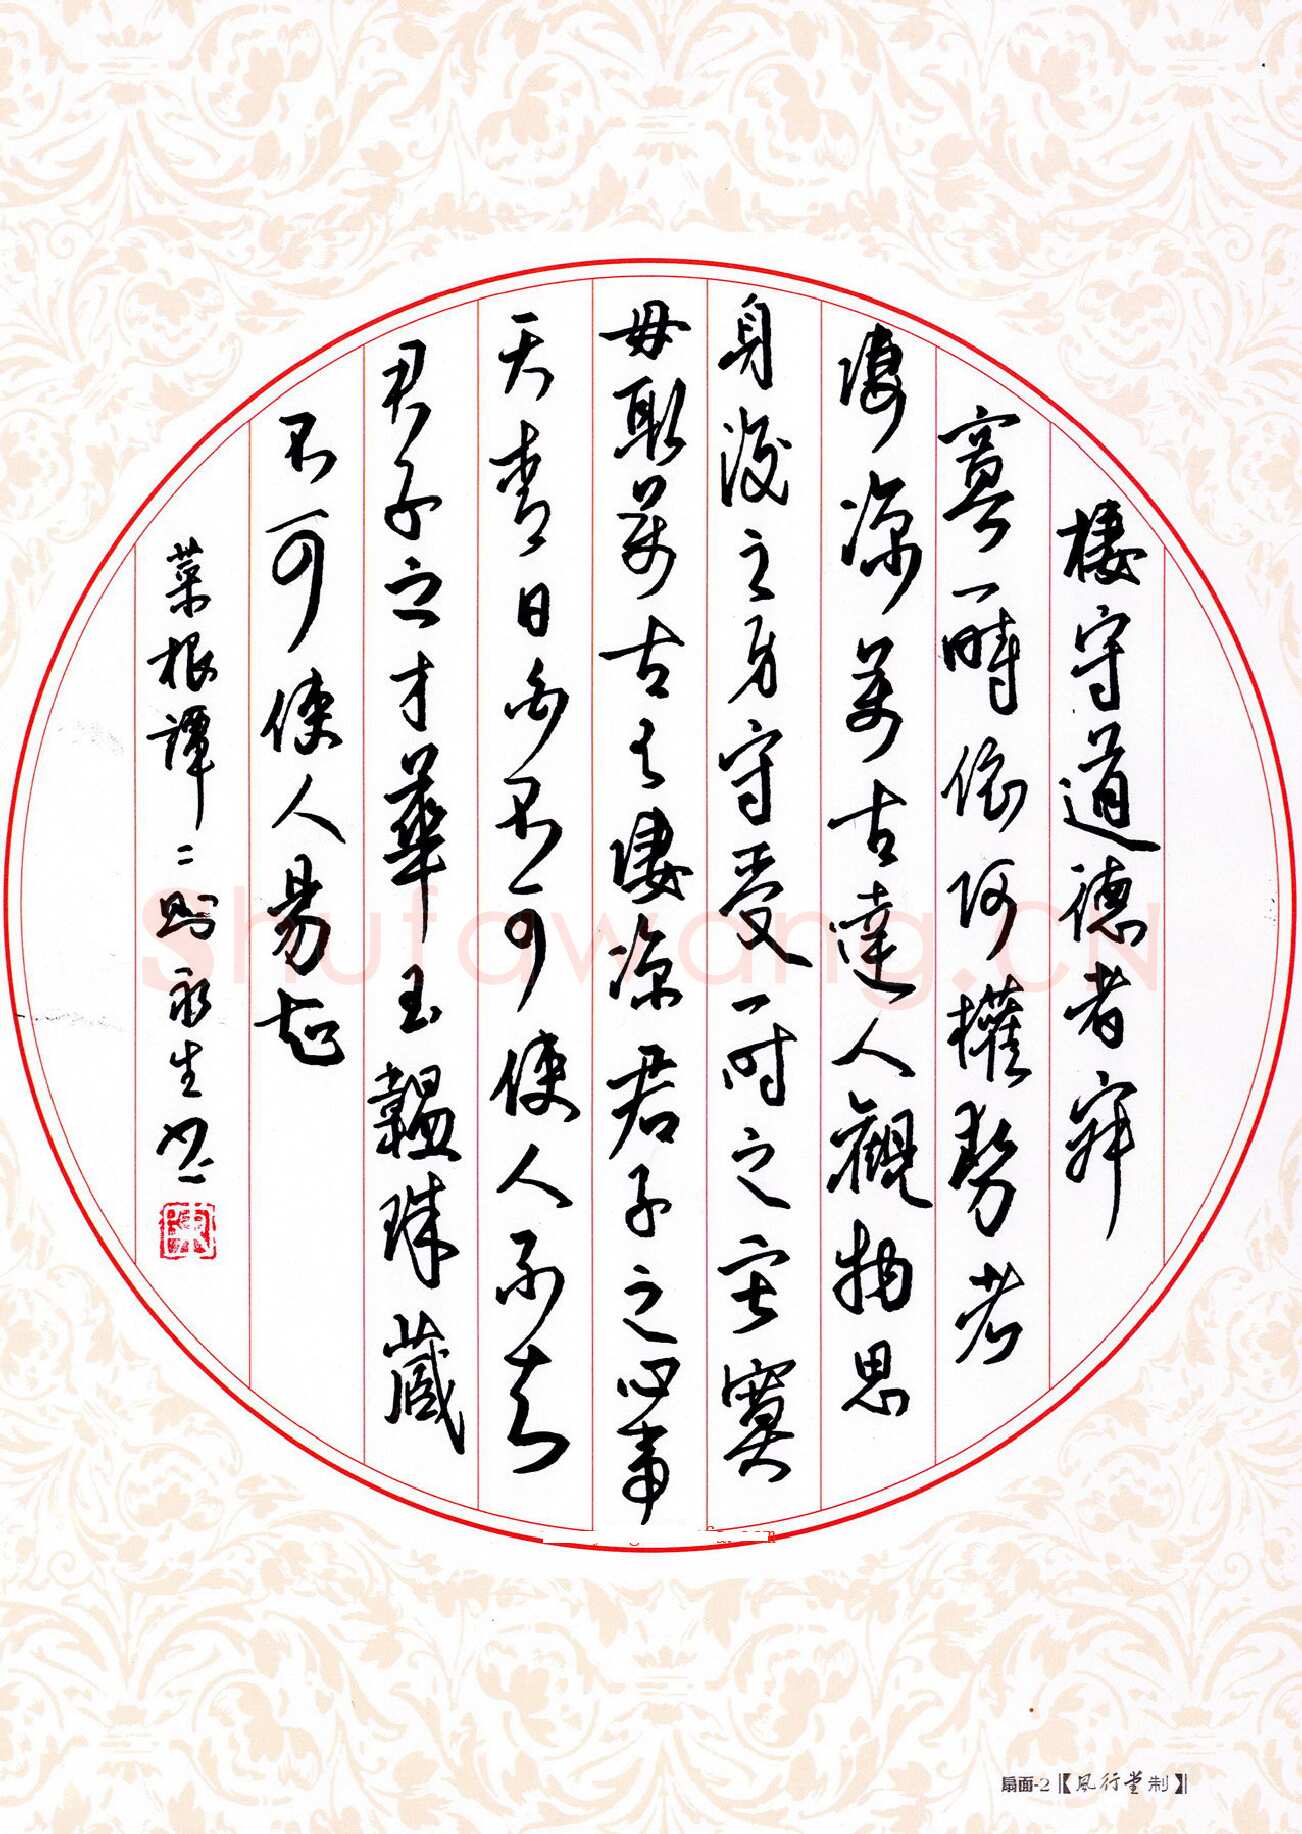 棲守道德者寂
寞一時依阿權勢者
淒涼萬古達人觀物思
身後之身守受一時之寂寞
毋取萬古之淒涼君子之心事
天青日白不可使人不知
君子之才華玉韞珠藏
不可使人易知
菜根譚二則永生書
陳
Shufawang.CN
扇面-2【風行堂制】